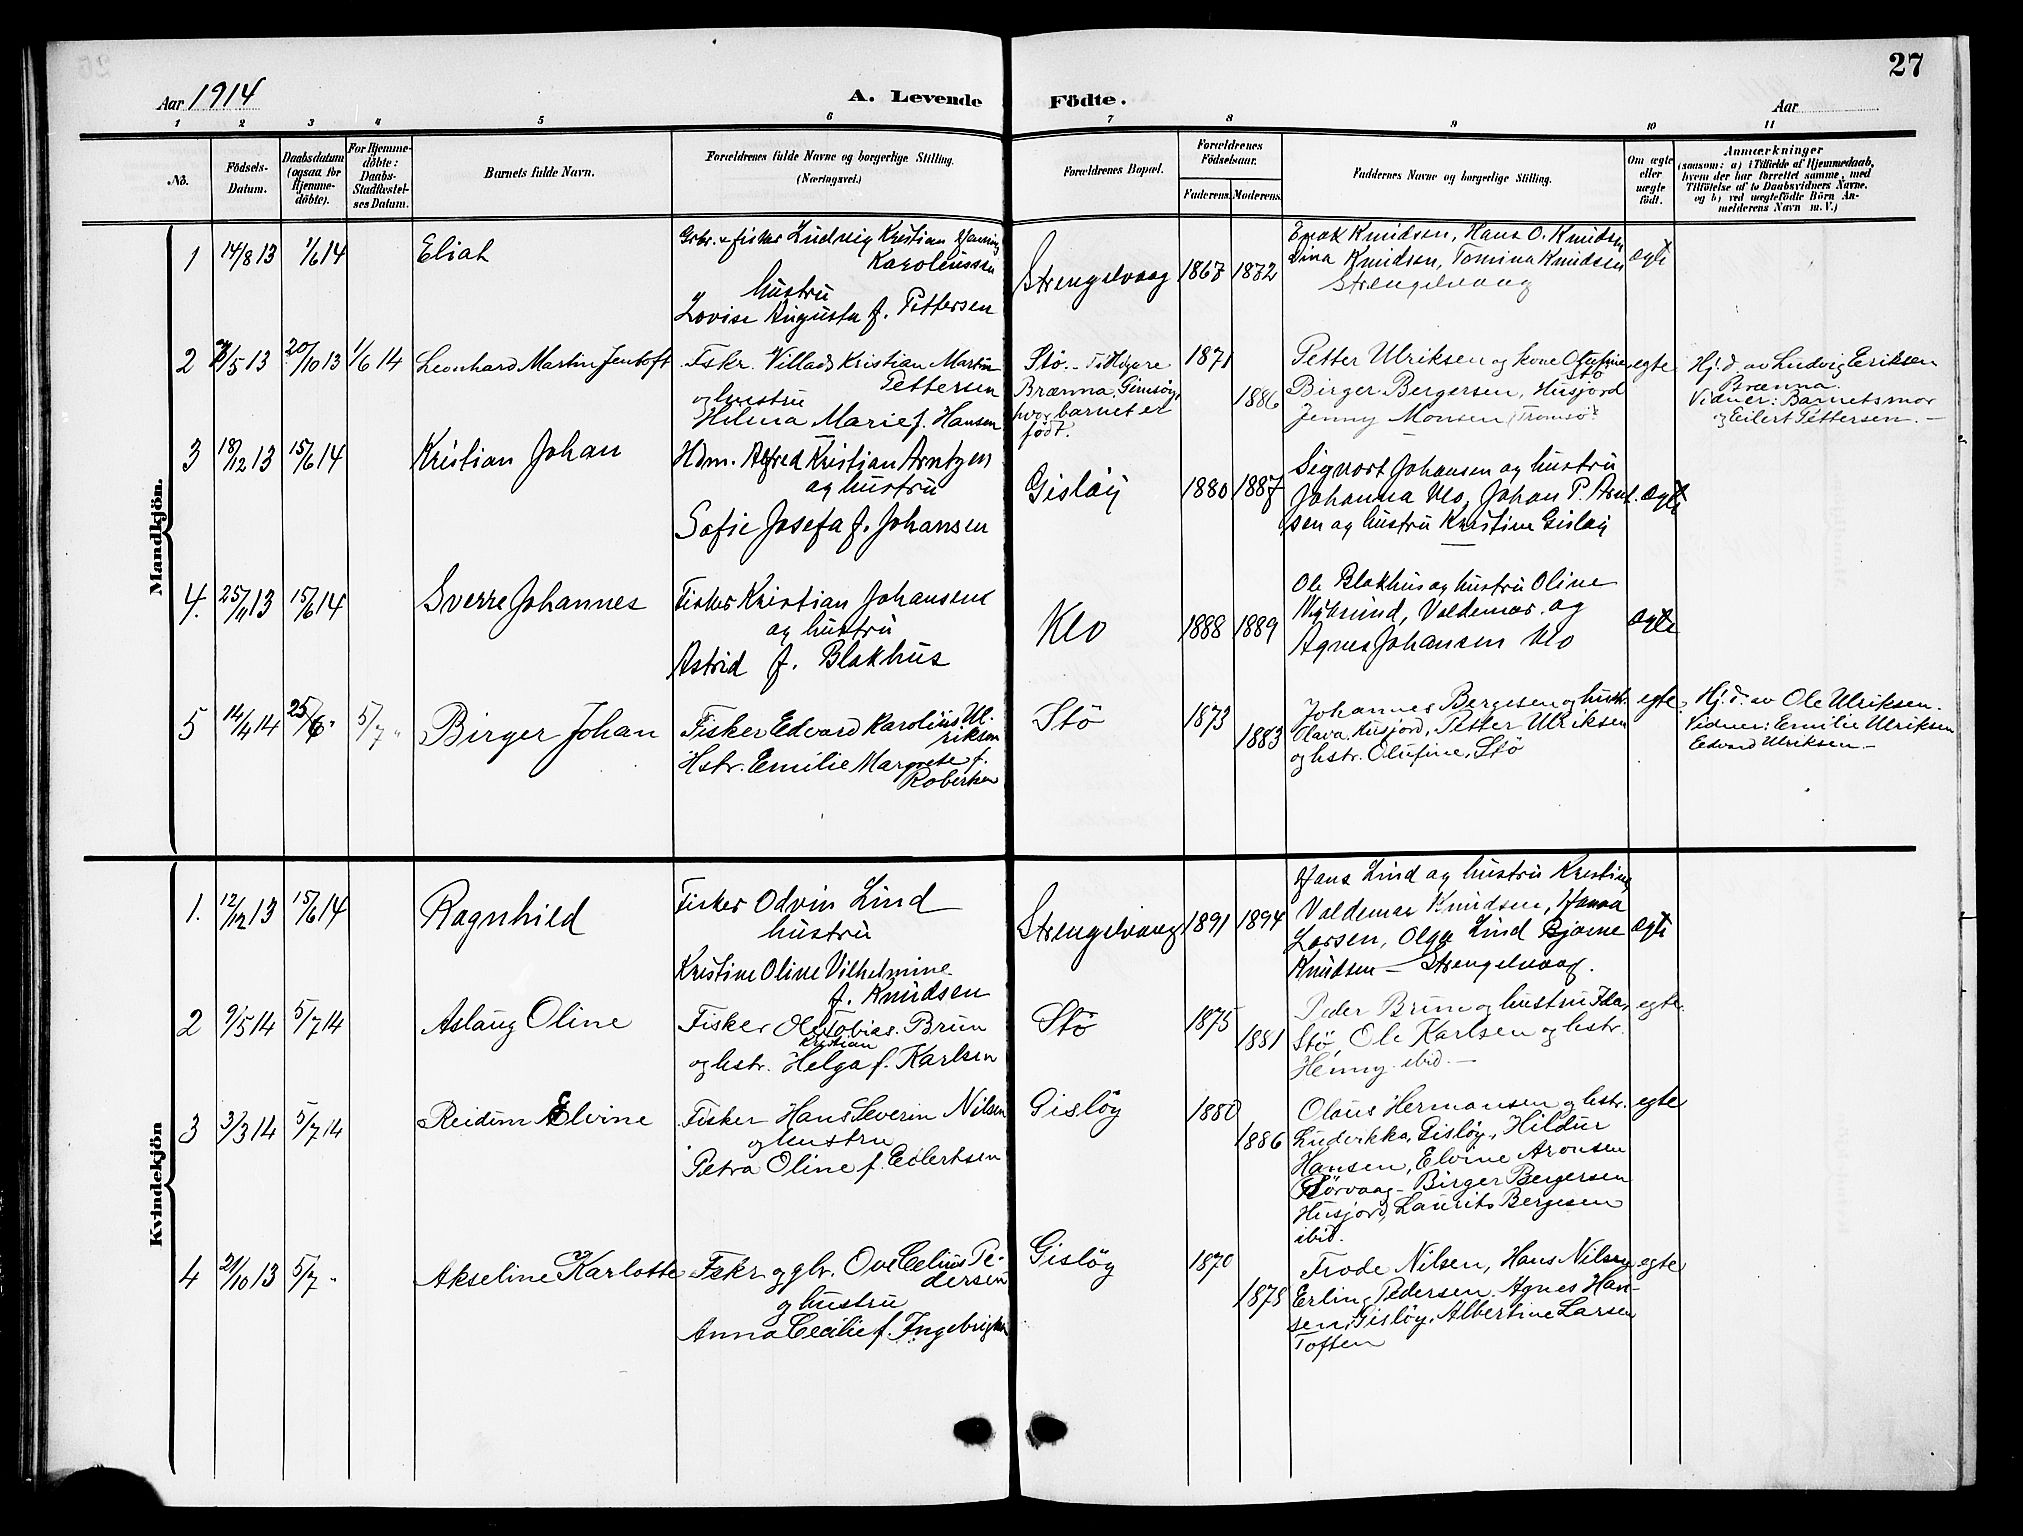 27
Aar 1914
A. Levende
Födte.
Aar
1 2 3 4 5 6 7 8 9 10 11
No.
Födsels-
Datum.
Daabsdatum
(ogsaa for
Hjemme-
döbte).
For Hjemme-
döbte:
Daabs-
Stadfæstel-
ses Datum.
Barnets fulde Navn.
Forældrenes fulde Navne og borgerlige Stilling.
(Næringsvei.)
Forældrenes Bopæl.
Forældrenes
Födselsaar.
Faderens. Moderens.
Faddernes Navne og borgerlige Stilling.
Om ægte
eller
uægte
födt.
Anmærkninger
(saasom: a) i Tilfælde af Hjemmedaab,
hvem der har forrettet samme, med
Tilföielse af to Daabsvidners Navne,
og b) ved uægtefödte Börn An-
melderens Navn m. V.)
Mandkjön.
1 14/8 13 1/6 14 Eliah
Grbr. & fisker Ludvig Kristian Henning
Karoliussen
hustru
Lovise Augusta f. Pettersen
Strengelvaag 1867 1872
Enok Knudsen, Hans O. Knudsen
Dina Knudsen, Tomina Knudsen
Strengelvaag
ægte
2 /5 13 20/10 13 1/6 14 Leonhard Martin Jentoft
Fskr. Villads Kristian Martin
Pettersen
og hustru
Helena Marie f. Hansen
Stö. - Tidligere
Brænna, Gimsöy,
hvor barnet er
födt.
1871
1886
Petter Ulriksen og kone Olufine
Stö
Birger Bergersen, Husjord
Jenny Monsen, Tromsö
egte
Hj. d. av Ludvig Eriksen
Brænna.
Vidner: Barnets mor
og Eilert Pettersen. -
3 18/12 13 15/6 14 Kristian Johan
Hdm. Alfred Kristian Arntzen
og hustru
Sofie Josefa f. Johansen
Gislöy 1880 1887
Sigvart Johansen og hustru
Johanna Klo, Johan P. Arnt-
sen og hustru Kristine Gislöy
ægte
4. 25/11 13 15/6 14 Sverre Johannes
Fisker Kristian Johansen
og hustru
Astrid f. Blokhus
Klo 1888 1889
Ole Blokhus og hustru Oline
Nyksund, Valdemar og
Agnes Johansen Klo
ægte
5 14/4 14 25/6 " 5/7 " Birger Johan
Fisker Edvard Karolius Ul-
riksen
Hstr. Emilie Margrete f.
Robertsen
Stö 1873
1883
Johannes Bergesen og hustr.
Olava, Husjord, Petter Ulriksen
og hstr. Olufine, Stö
egte.
Hj. d. av Ole Ulriksen.
Vidner: Emilie Ulriksen
Edvard Ulriksen. -
Kvindekjön
1. 12/12 13 15/6 14 Ragnhild
Fisker Odvin Lind
hustru
Kristine Oline Vilhelmine
f. Knudsen
Strengelvaag 1891 1894
Hans Lind og hustru Kristine
Valdemar Knudsen, Hanna
Larsen, Olga Lind Bjarne
Knudsen - Strengelvaag.
ægte
2 9/5 14 5/7 14 Aslaug Oline
Fisker Ole Tobias Brun
Kristian
og hstr. Helga f. Karlsen
Stö 1875
1881
Peder Brun og hustru Ida,
Stö, Ole Karlsen og hstr.
Henny. ibid. -
egte.
3 3/3 14 5/7 14 Reidun Elvine
Fisker Hans Severin Nilsen
og hustru
Petra Oline f. Eilertsen
Gislöy 1880
1886
Olaus Hermansen og hstr.
Ludvikka, Gislöy, Hildur
Hansen, Elvine Aronsen
Störvaag - Birger Bergersen
Husjord, Laurits Bergesen
ibid.
egte
4 21/10 13 5/7 " Akseline Karlotte
Fskr og glv. Ove Celius Pe-
dersen
og hustru
Anna Cecilie f. Ingebrigtsen
Gislöy 1870
1878
Frode Nilsen, Hans Nilsen
Erling Pedersen, Agnes Han-
sen, Gislöy, Albertine Larsen
Toften
egte